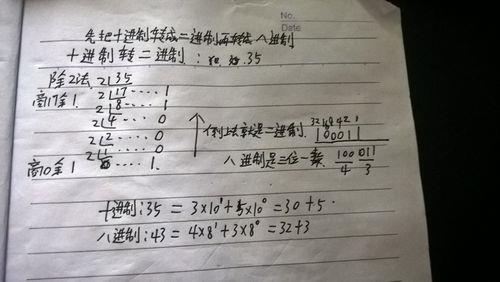 No.
Date
先把十进制转成二进制再转成八进制
十进制转二进制：把 35
除2法. 2|35
商17余1. 2|17····1
2|8····1
2|4····0
2|2····0
2|1····0
商0余1 0····1.
倒过来就是二进制. 32 16 8 4 2 1
100011
八进制是三位一数. 100 011
4 3
十进制:35 = 3×10¹+5×10⁰ = 30+5.
八进制:43 = 4×8¹+3×8⁰ = 32+3